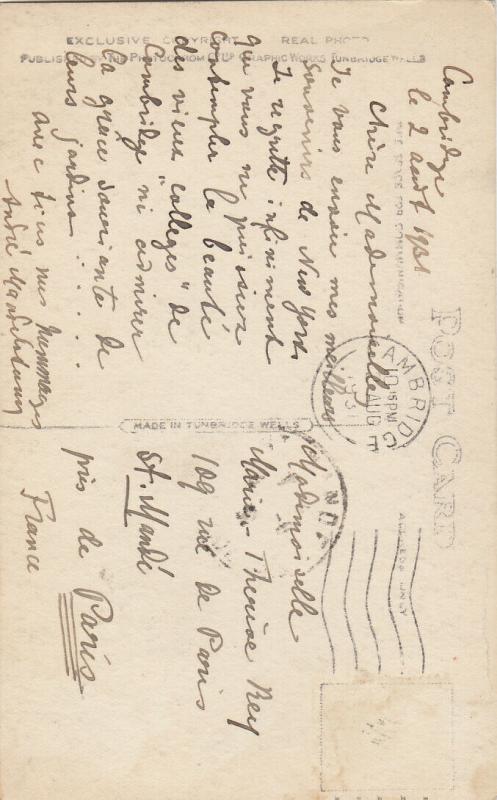 EXCLUSIVE COPYRIGHT REAL PHOTO
PUBLISHED BY THE PHOTOCHROM CO LTD GRAPHIC WORKS TUNBRIDGE WELLS
POST CARD
THIS SPACE FOR COMMUNICATION
ADDRESS ONLY
MADE IN TUNBRIDGE WELLS
CAMBRIDGE
10.15PM
AUG
1931
Cambridge
le 2 août 1931
Chère Mademoiselle,
Je vous envoie mes meilleurs
souvenirs de New York
Je regrette infiniment
que vous ne puissiez
contempler la beauté
des vieux "colleges" de
Cambridge ni admirer
la grâce souriante de
leurs jardins .......
avec tous mes hommages
André
Mademoiselle
Marie-Thérèse Rey
109 rue de Paris
St. Mandé
près de Paris
France